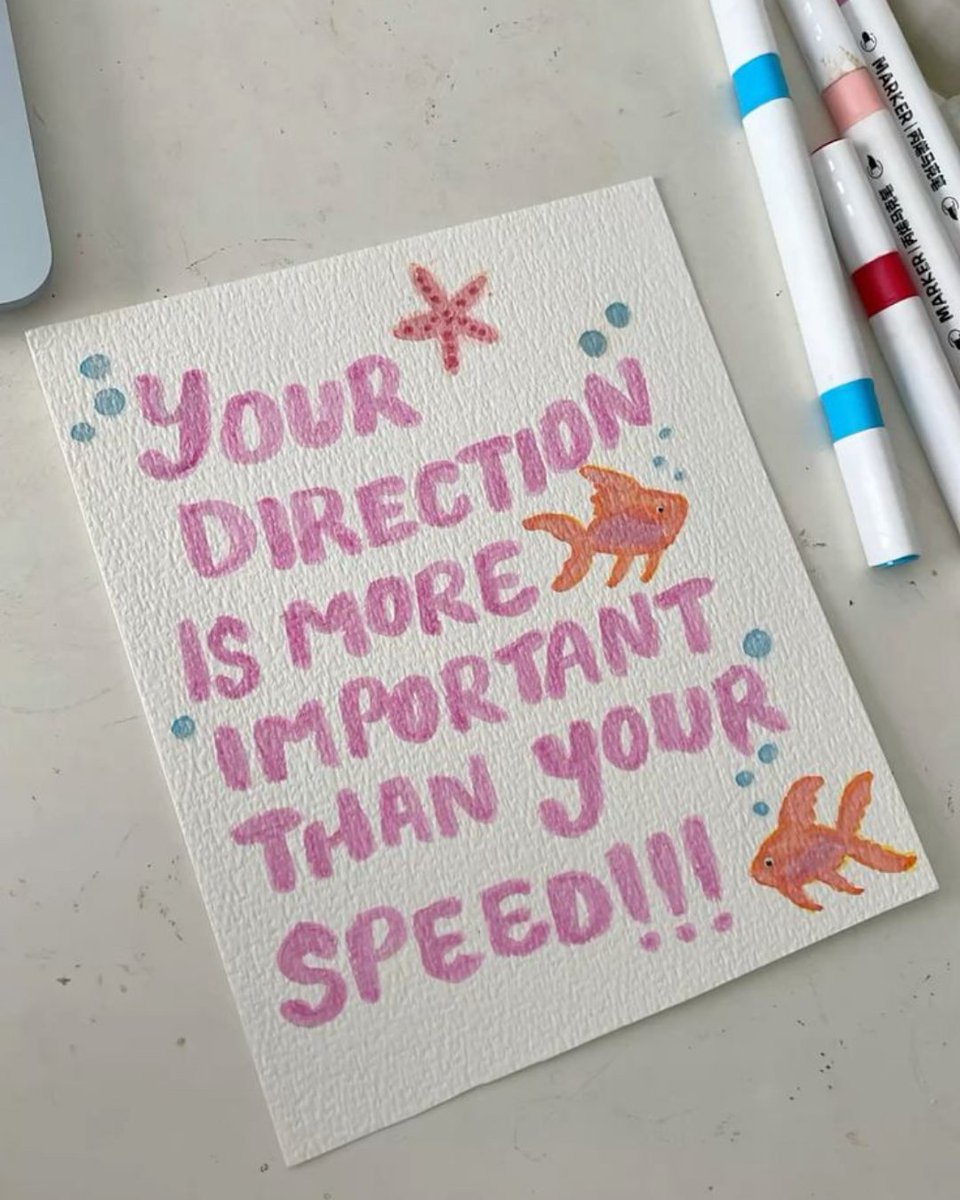 YOUR
DIRECTION
IS MORE
IMPORTANT
THAN YOUR
SPEED!!!
MARKER
MARKER